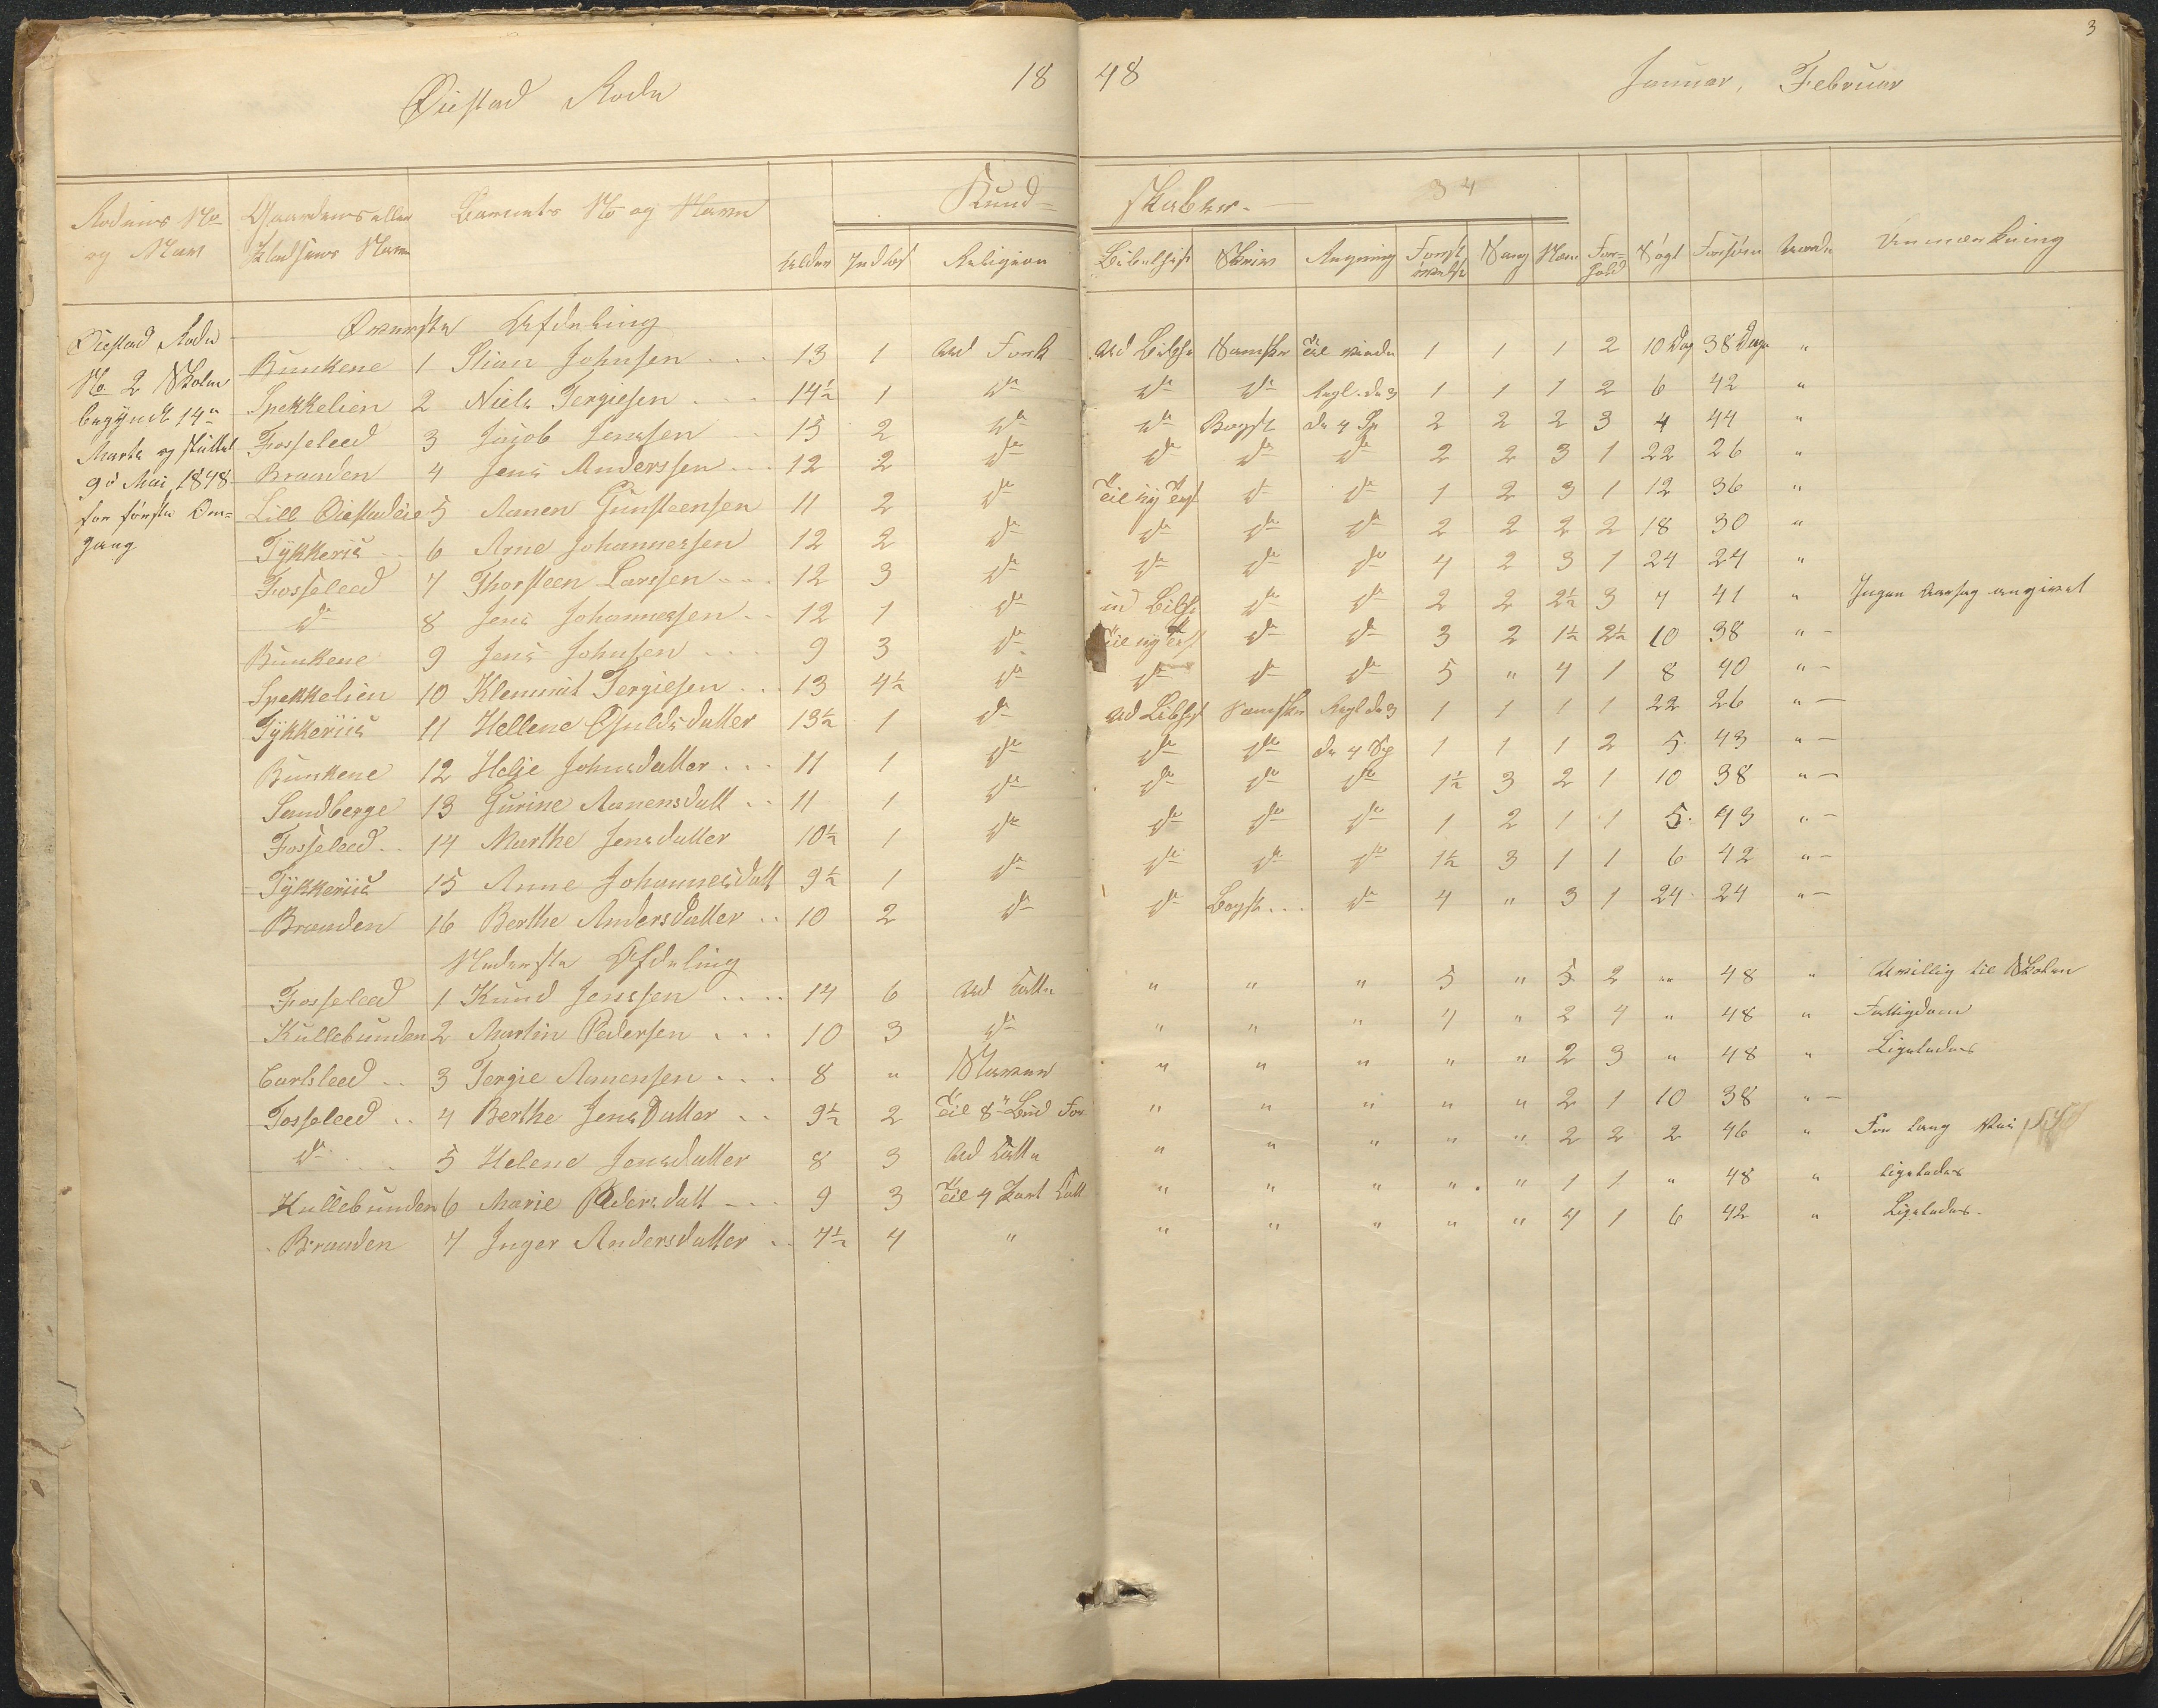 3
Øiestad Rode 18 48 Januar, Februar
Kund= skaber. 34
Rodens No og Navn Gaardens eller Pladsens Navn Barnets No og Navn Alder Indlæs Religion Bibelhist Skriv Regning Forst øvelse Sang Mem For=hold Søgt Forsømt Anmærkning
Øiestad Rode
No 2 Skolen
begyndt 14de
Marts og sluttet
9de Mai 1848
for første Om=
gang
Øverste Afdeling
Bunkene 1 Stian Johnsen 13 1 Ud Fork Ud Bibhi Samskr 1 1 1 2 10 Dag 38 Dage "
Spekkelien 2 Niels Tergiesen 14½ 1 do do do 1 1 1 2 6 42 "
Fosseleed 3 Jacob Jenssen 15 2 do do Bogst de 4 Sp 2 2 2 3 4 44 "
Braaden 4 Jens Anderssen 12 2 do do do do 2 2 3 1 22 26 "
Lill Øiestadøie 5 Aanen Gunsteensen 11 2 do Til ny Test do do 1 2 3 1 12 36 "
Tykkeriis 6 Arne Johannessen 12 2 do do do do 2 2 2 2 18 30 "
Fosseleed 7 Thorsteen Larssen 12 3 do do do do 4 2 3 1 24 24 "
do 8 Jens Johannessen 12 1 do ud Bibhi do do 2 2 2½ 3 7 41 " Ingen Aarsag angivet
Bunkene 9 Jens Johnsen 9 3 do Til ny Test do do 3 2 1½ 2½ 10 38 " -
Spekkelien 10 Klemmit Tergiesen 13 4½ do do do do 5 " 4 1 8 40 " -
Tykkeriis 11 Hellene Osuldsdatter 13½ 1 do Ud Bibhist Samskr Regl de 3 1 1 1 1 22 26 " -
Bunkene 12 Helje Johnsdatter 11 1 do do do de 4 Sp 1 1 1 2 5 43 " -
Sandberge 13 Gurine Aanensdatt 11 1 do do do do 1½ 3 2 1 10 38 " -
Fosseleed 14 Marthe Jensdatter 10½ 1 do do do do 1 2 1 1 5 43 " -
Tykkeriis 15 Anne Johannesdatt 9½ 1 do do do do 1½ 3 1 1 6 42 " -
Braaden 16 Berthe Andersdatter 10 2 do do Bogst do 4 " 3 1 24 24 " -
Nederste Afdeling
Fosseleed 1 Knud Jenssen 14 6 Ud Katte " " " 5 " 5 2 " 48 " Uvillig til Skolen
Kullebunden 2 Martin Pedersen 10 3 do " " " 4 " 2 4 " 48 " Fattigdom
Carlsleed 3 Tergie Aanensen 8 " Staver " " " " " 2 3 " 48 " Ligeledes
Fosseleed 4 Berthe Jensdatter 9½ 2 Til 8de Bud For " " " " " 2 1 10 38 " -
do 5 Helene Jensdatter 8 3 Ud Katte " " " " " 2 2 2 46 " For lang Vei
Kullebunden 6 Marie Pedersdatt 9 3 Til 4 Part Katt " " " " " 1 1 " 48 " ligeledes
Braaden 7 Inger Andersdatter 7½ 4 " " " " " " 4 1 6 42 " Ligeledes.